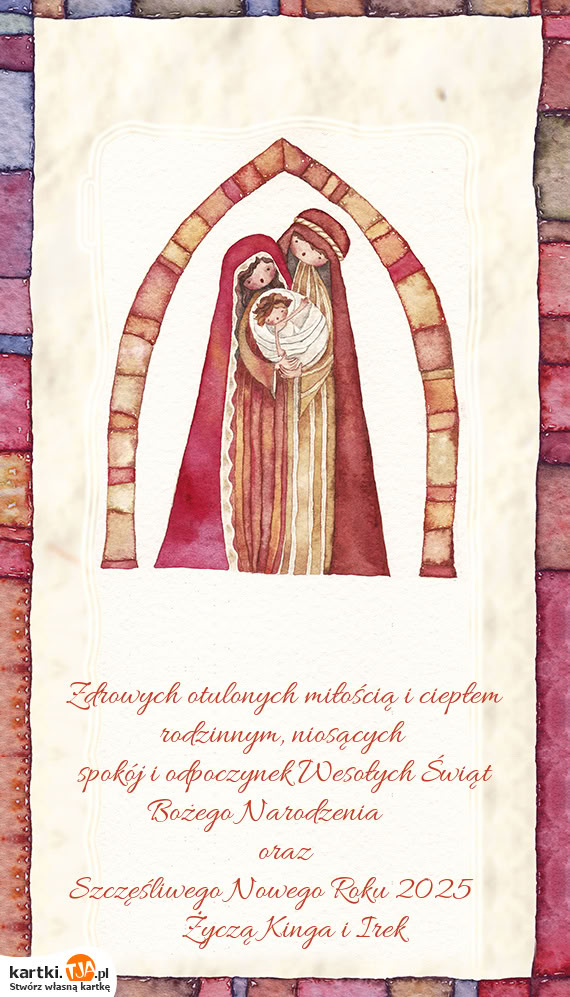 Zdrowych otulonych miłością i ciepłem
rodzinnym, niosących
spokój i odpoczynek Wesołych Świąt
Bożego Narodzenia
oraz
Szczęśliwego Nowego Roku 2025
Życzą Kinga i Irek
kartki.TJA.pl
Stwórz własną kartkę